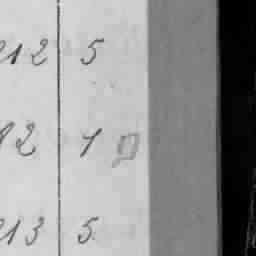 212 5
12 1
213 5